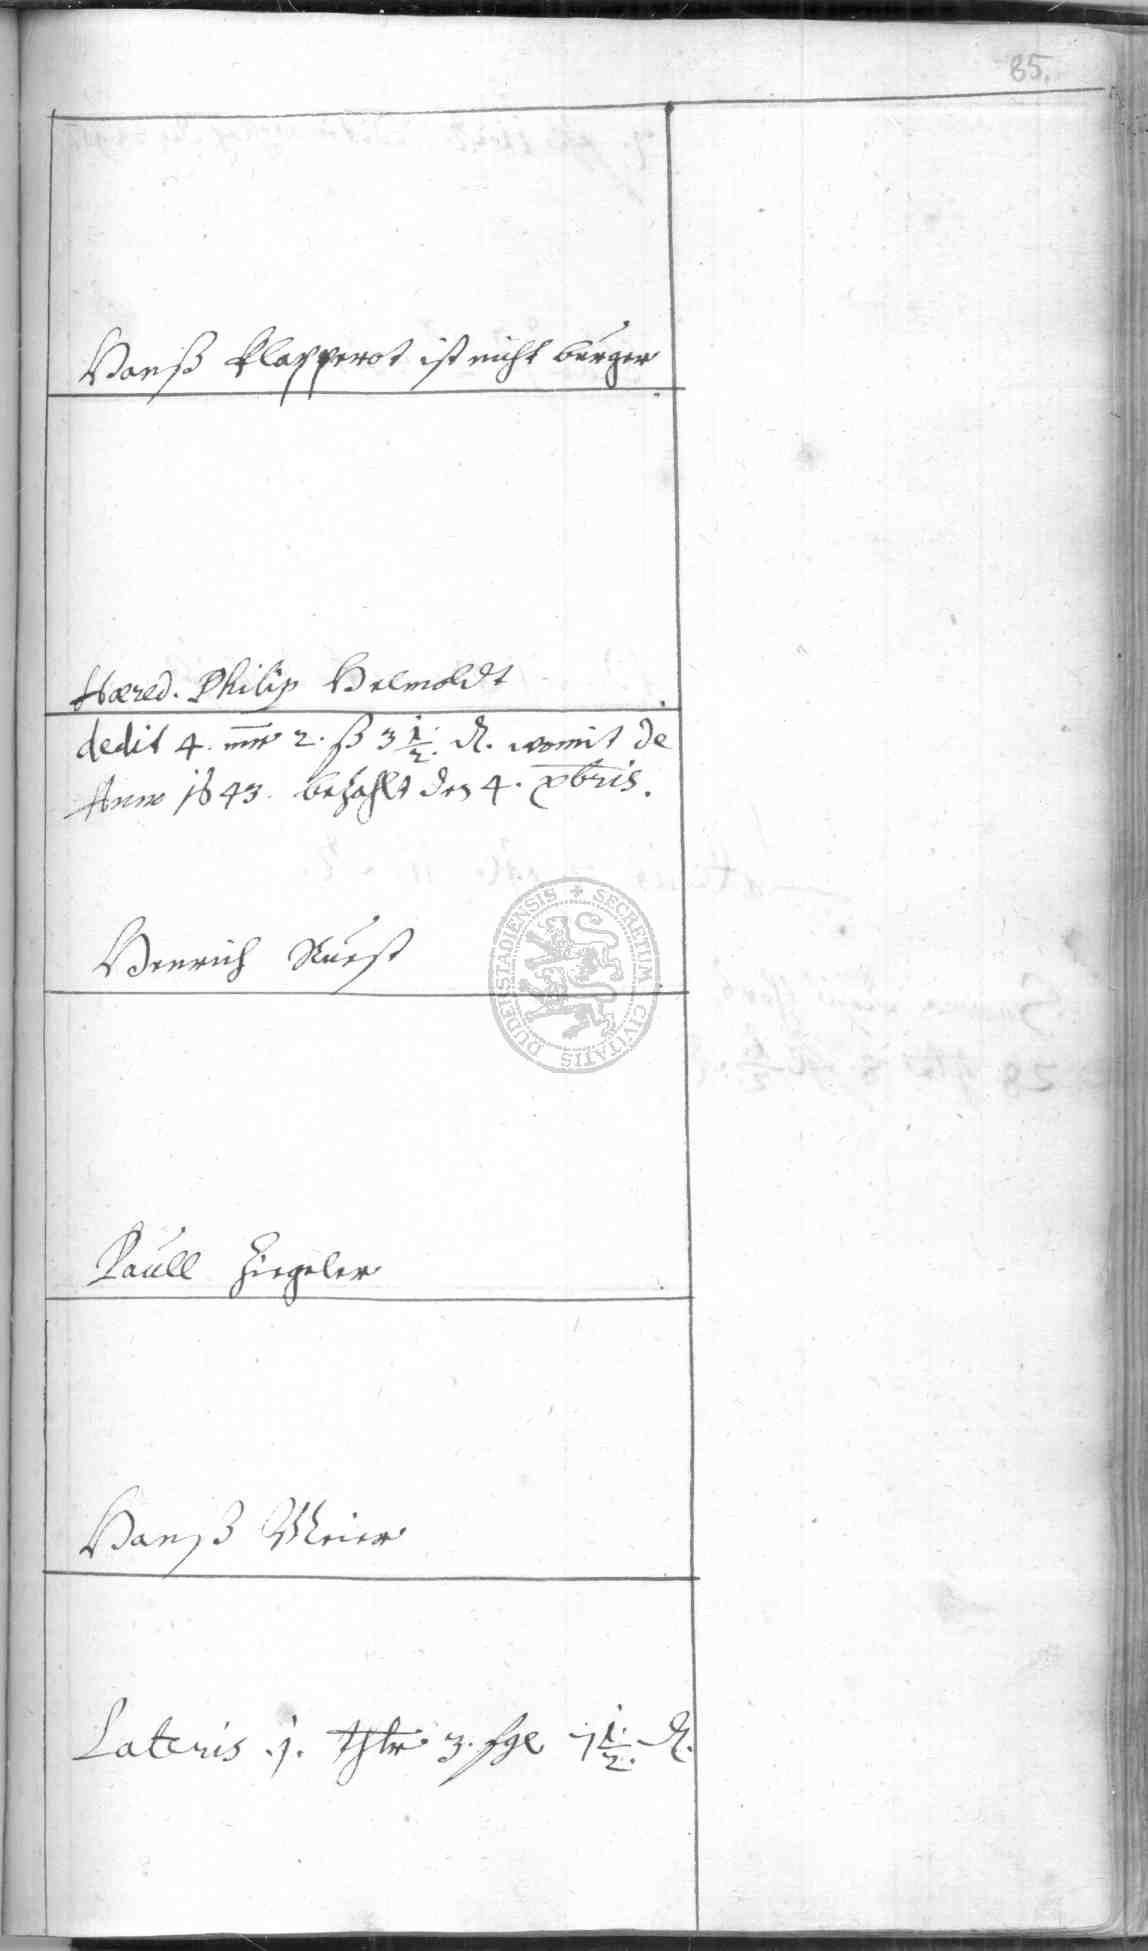 85.
Hanß Klapperot ist nicht burger
Hæred. Philip Helmoldt
dedit 4. mr 2. ß 3 1/2. ₰. womit de
Anno 1643. bezahlt den 4. xbris.
Henrich Kuest
SECRETUM CIVITATIS DUDERSTADIENSIS
Paull Ziegeler
Hanß Meier
Lateris .j. thlr 3. sgl 1 1/2. ₰.